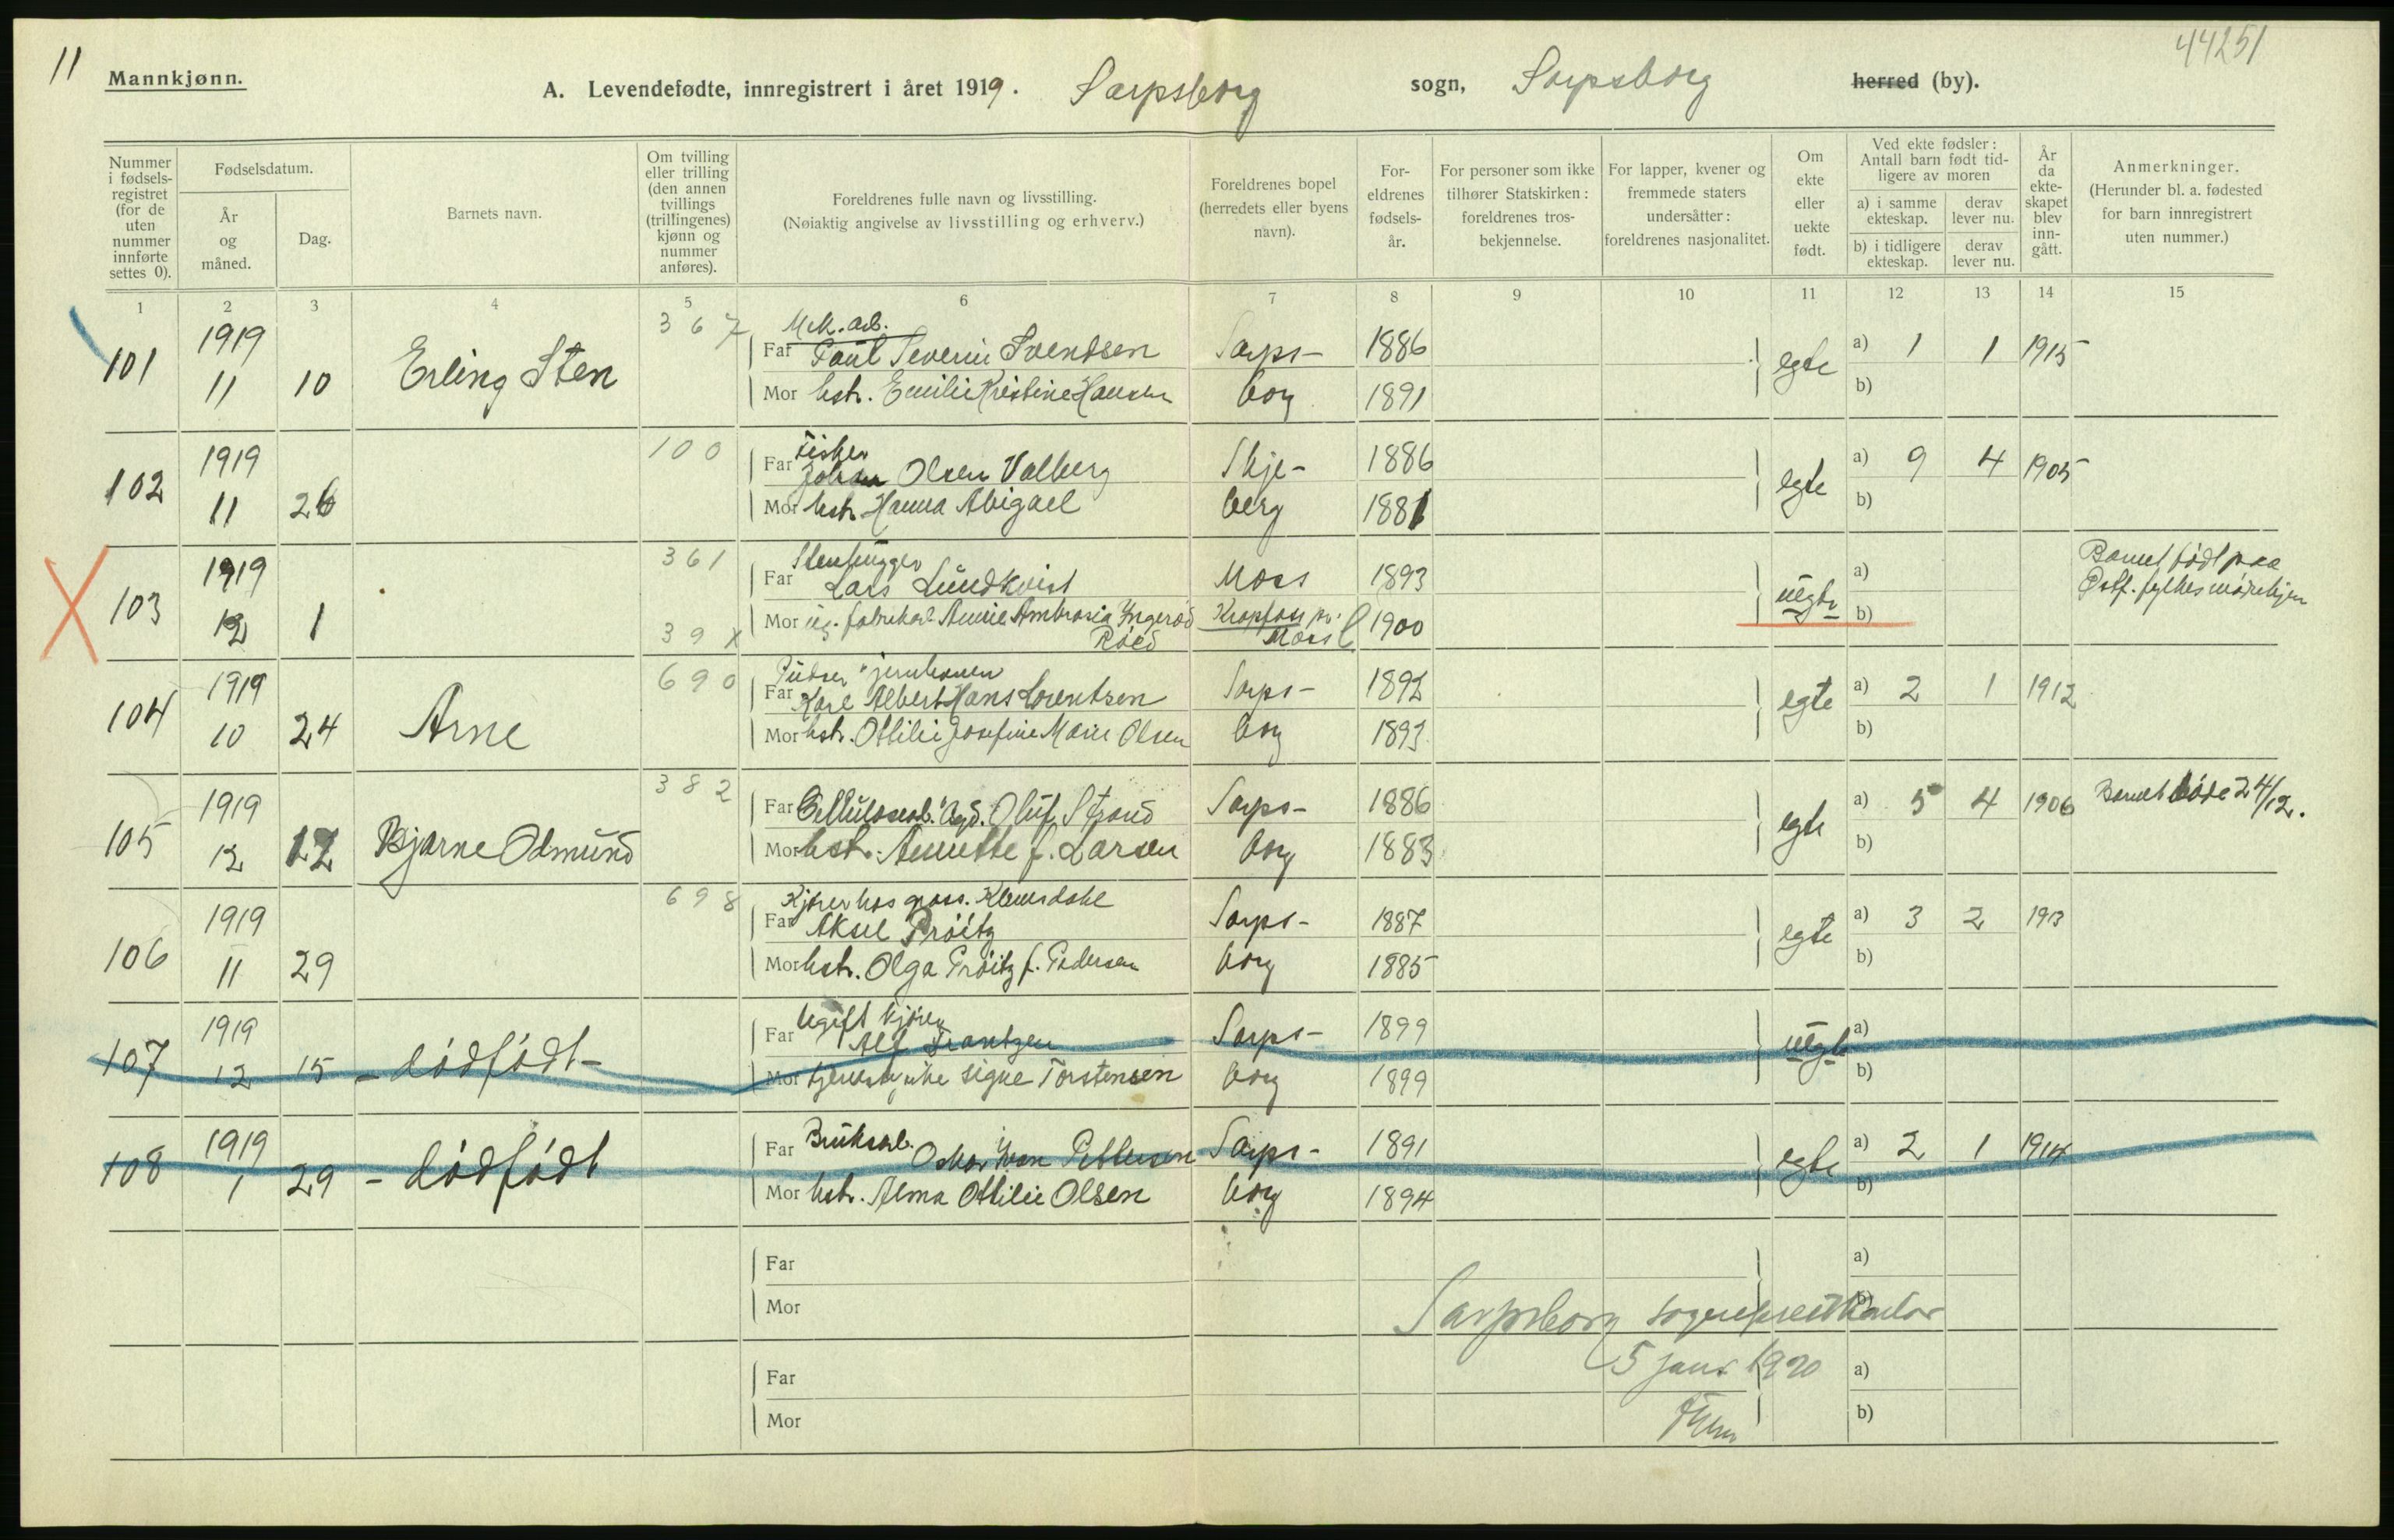 11
44251
Mannkjønn.
A. Levendefødte, innregistrert i året 1919. Sarpsborg sogn, Sarpsborg herred (by).
Nummer i fødsels-registret (for de uten nummer innførte settes 0).
Fødselsdatum.
År og måned.
Dag.
Barnets navn.
Om tvilling eller trilling (den annen tvillings (trillingenes) kjønn og nummer anføres).
Foreldrenes fulle navn og livsstilling.
(Nøiaktig angivelse av livsstilling og erhverv.)
Foreldrenes bopel (herredets eller byens navn).
For-eldrenes fødsels-år.
For personer som ikke tilhører Statskirken: foreldrenes tros-bekjennelse.
For lapper, kvener og fremmede staters undersåtter: foreldrenes nasjonalitet.
Om ekte eller uekte født.
Ved ekte fødsler: Antall barn født tid-ligere av moren
a) i samme ekteskap.
derav lever nu.
b) i tidligere ekteskap.
derav lever nu.
År da ekte-skapet blev inn-gått.
Anmerkninger.
(Herunder bl. a. fødested for barn innregistrert uten nummer.)
1 2 3 4 5 6 7 8 9 10 11 12 13 14 15
367 Mek. arb.
101 1919 11 10 Erling Sten
Far Paul Severin Svendsen Sarps- 1886 egte a) 1 1 1915
Mor hstr. Emilie Kristine Hansen borg 1891 b)
100 Fisker
102 1919 11 26
Far Johan Olsen Valberg Skje- 1886 egte a) 9 4 1905
Mor hstr. Hanna Abigael berg 1881 b)
361 Stenhugger
103 1919 12 1
Far Lars Lundkvist Moss 1893 uegte a) Barnet født paa
Østf. fylkes mødrehjem
Mor ug. fabrikarb. Annie Ambrosia Yngerød Krapfoss pr. 1900 b)
39x Röed Moss
690 Pudser v jernhaven
104 1919 10 24 Arne
Far Karl Albert Hans Lorentzen Sarps- 1892 egte a) 2 1 1912
Mor hstr. Ottilie Josefine Marie Olsen borg 1893 b)
382
105 1919 12 12 Bjarne Odmund
Far Cellulosearb. Olüf Strand Sarps- 1886 egte a) 5 4 1906 Barnet døde 24/12.
Mor hstr. Annette f. Larsen borg 1883 b)
698 Kjører hos gross. Klemsdahl
106 1919 11 29
Far Aksel Prøitz Sarps- 1887 egte a) 3 2 1913
Mor hstr. Olga Prøitz f. Pedersen borg 1885 b)
Ugift kjører
107 1919 12 15 - dødfødt -
Far Alf Frantzen Sarps- 1899 uegte a)
Mor tjenestepike Signe Torstensen borg 1899 b)
108 1919 1 29 - dødfødt
Far Bruksarb. Oskar Ivan Pettersen Sarps- 1891 egte a) 2 1 1914
Mor hstr. Alma Ottilie Olsen borg 1894 b)
Far a)
Mor b)
Sarpsborg sogneprestkontor
5 janr 1920
Far a)
Mor b)